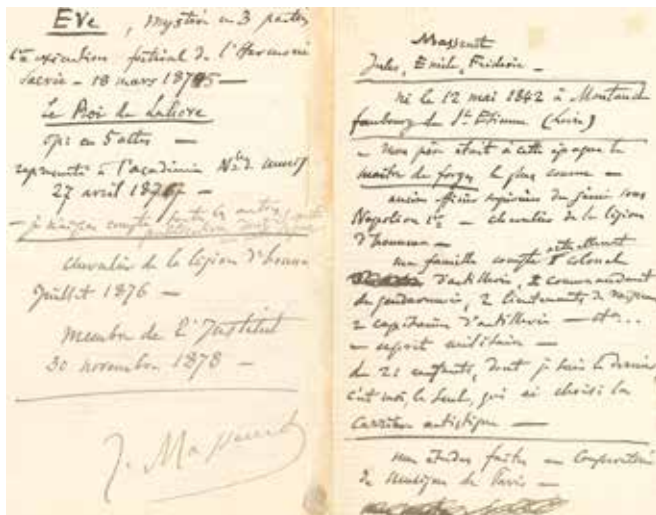 Eve, mystère en 3 parties
1re exécution festival de l'Harmonie
Sacrée - 18 mars 1875 -
Le Roi de Lahore
op: en 5 actes -
représenté à l'académie Nle d. musiq
27 avril 1877 -
- je n'ai pas compté toutes les autres
chevalier de la légion d'honneur
Juillet 1876 -
membre de l'Institut
30 novembre 1878 -
J. Massenet
Massenet
Jules, Emile, Frédéric -
né le 12 mai 1842 à Montaud
faubourg de St Etienne (Loire)
- mon père était à cette époque le
maître de forges le plus connu -
ancien officier supérieur du génie sous
Napoléon 1er - chevalier de la légion
d'honneur -
ma famille compte actuellement 1 colonel
d'artillerie, 2 commandants
de gendarmerie, 2 lieutenants de
2 capitaines d'artillerie - etc...
- esprit militaire -
de 21 enfants, dont je suis le dernier,
c'est moi, le seul, qui ai choisi la
carrière artistique -
mes études faites au Conservatoire
de Musique de Paris -